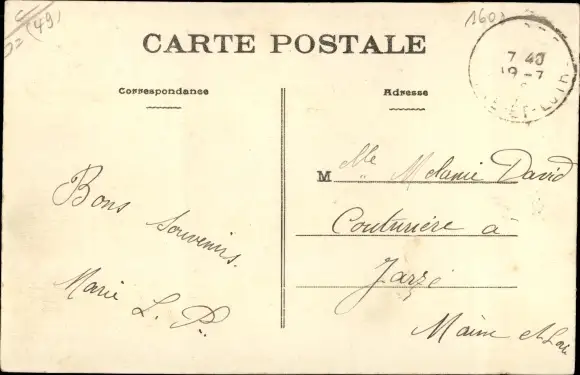 (49)
1603
CARTE POSTALE
Correspondance
Adresse
7 40
19-7
ET-LOIR
Bons
Souvenirs.
Marie L. P.
M Mlle Melanie David
Couturière à
Jarzé
Maine et Loir